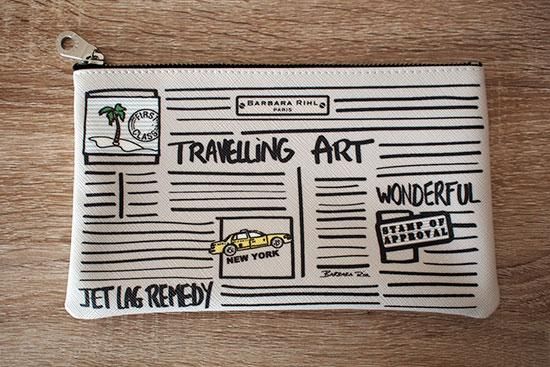 BARBARA RIHL
PARIS
FIRST
CLASS
TRAVELLING ART
WONDERFUL
STAMP OF
APPROVAL
NEW YORK
BARBARA RIHL
JET LAG REMEDY